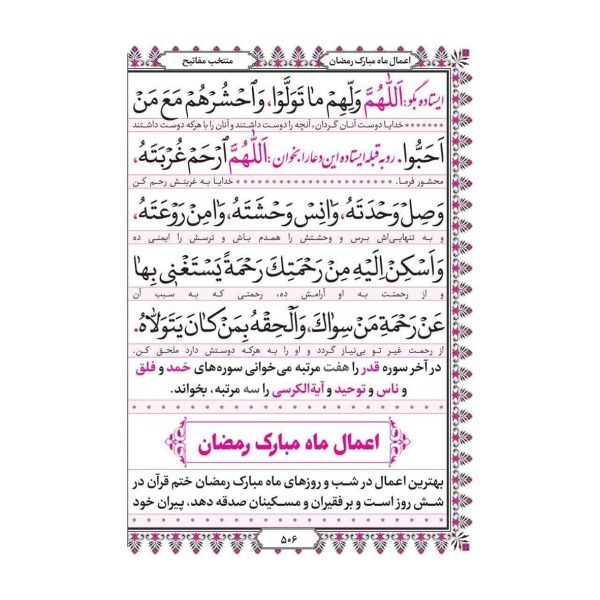 اعمال ماه مبارک رمضان
منتخب مفاتیح
ایستاده بگو: اَللّٰهُمَّ وَلِّهِمْ مٰا تَوَلَّوْا، وَاحْشُرْهُمْ مَعَ مَنْ
خدایا دوست آنان گردان، آنچه را دوست داشتند و آنان را با هرکه دوست داشتند
اَحَبُّوا. رو به قبله ایستاده این دعا را بخوان: اَللّٰهُمَّ ارْحَمْ غُرْبَتَهُ،
محشور فرما. خدایا به غربتش رحم کن
وَصِلْ وَحْدَتَهُ، وَاٰنِسْ وَحْشَتَهُ، وَاٰمِنْ رَوْعَتَهُ،
و به تنهایی‌اش برس و وحشتش را همدم باش و ترسش را ایمنی ده
وَاَسْكِنْ اِلَيْهِ مِنْ رَحْمَتِكَ رَحْمَةً يَسْتَغْنٖى بِهٰا
و از رحمتت به او آرامش ده، رحمتی که به سبب آن
عَنْ رَحْمَةِ مَنْ سِوٰاكَ، وَاَلْحِقْهُ بِمَنْ كٰانَ يَتَوَلّٰاهُ.
از رحمت غیر تو بی‌نیاز گردد و او را به هرکه دوستش دارد ملحق کن.
در آخر سوره قدر را هفت مرتبه می‌خوانی سوره‌های حَمد و فلق
و ناس و توحید و آیةالکرسی را سه مرتبه، بخواند.
اعمال ماه مبارک رمضان
بهترین اعمال در شب و روزهای ماه مبارک رمضان ختم قرآن در
شش روز است و بر فقیران و مسکینان صدقه دهد، پیران خود
۵۰۶